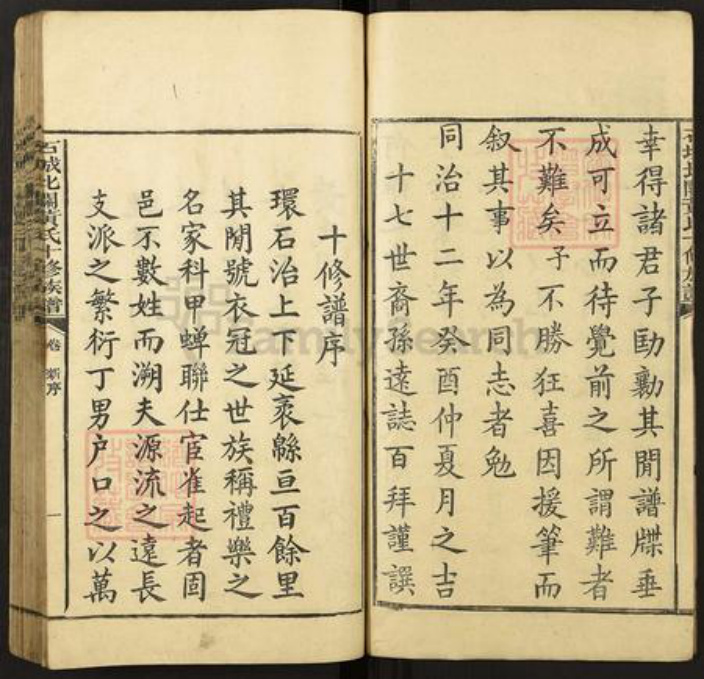 幸得諸君子劻勷其閒譜牒垂
成可立而待覺前之所謂難者
不難矣予不勝狂喜因援筆而
敘其事以為同志者勉
同治十二年癸酉仲夏月之吉
十七世裔孫遠誌百拜謹譔
十修譜序
環石治上下延袤緜亘百餘里
其閒號衣冠之世族稱禮樂之
名家科甲蟬聯仕宦隺起者固
邑不數姓而溯夫源流之遠長
支派之繁衍丁男户口之以萬
石城北關黃氏十修族譜
卷
新序
一
FamilySearch